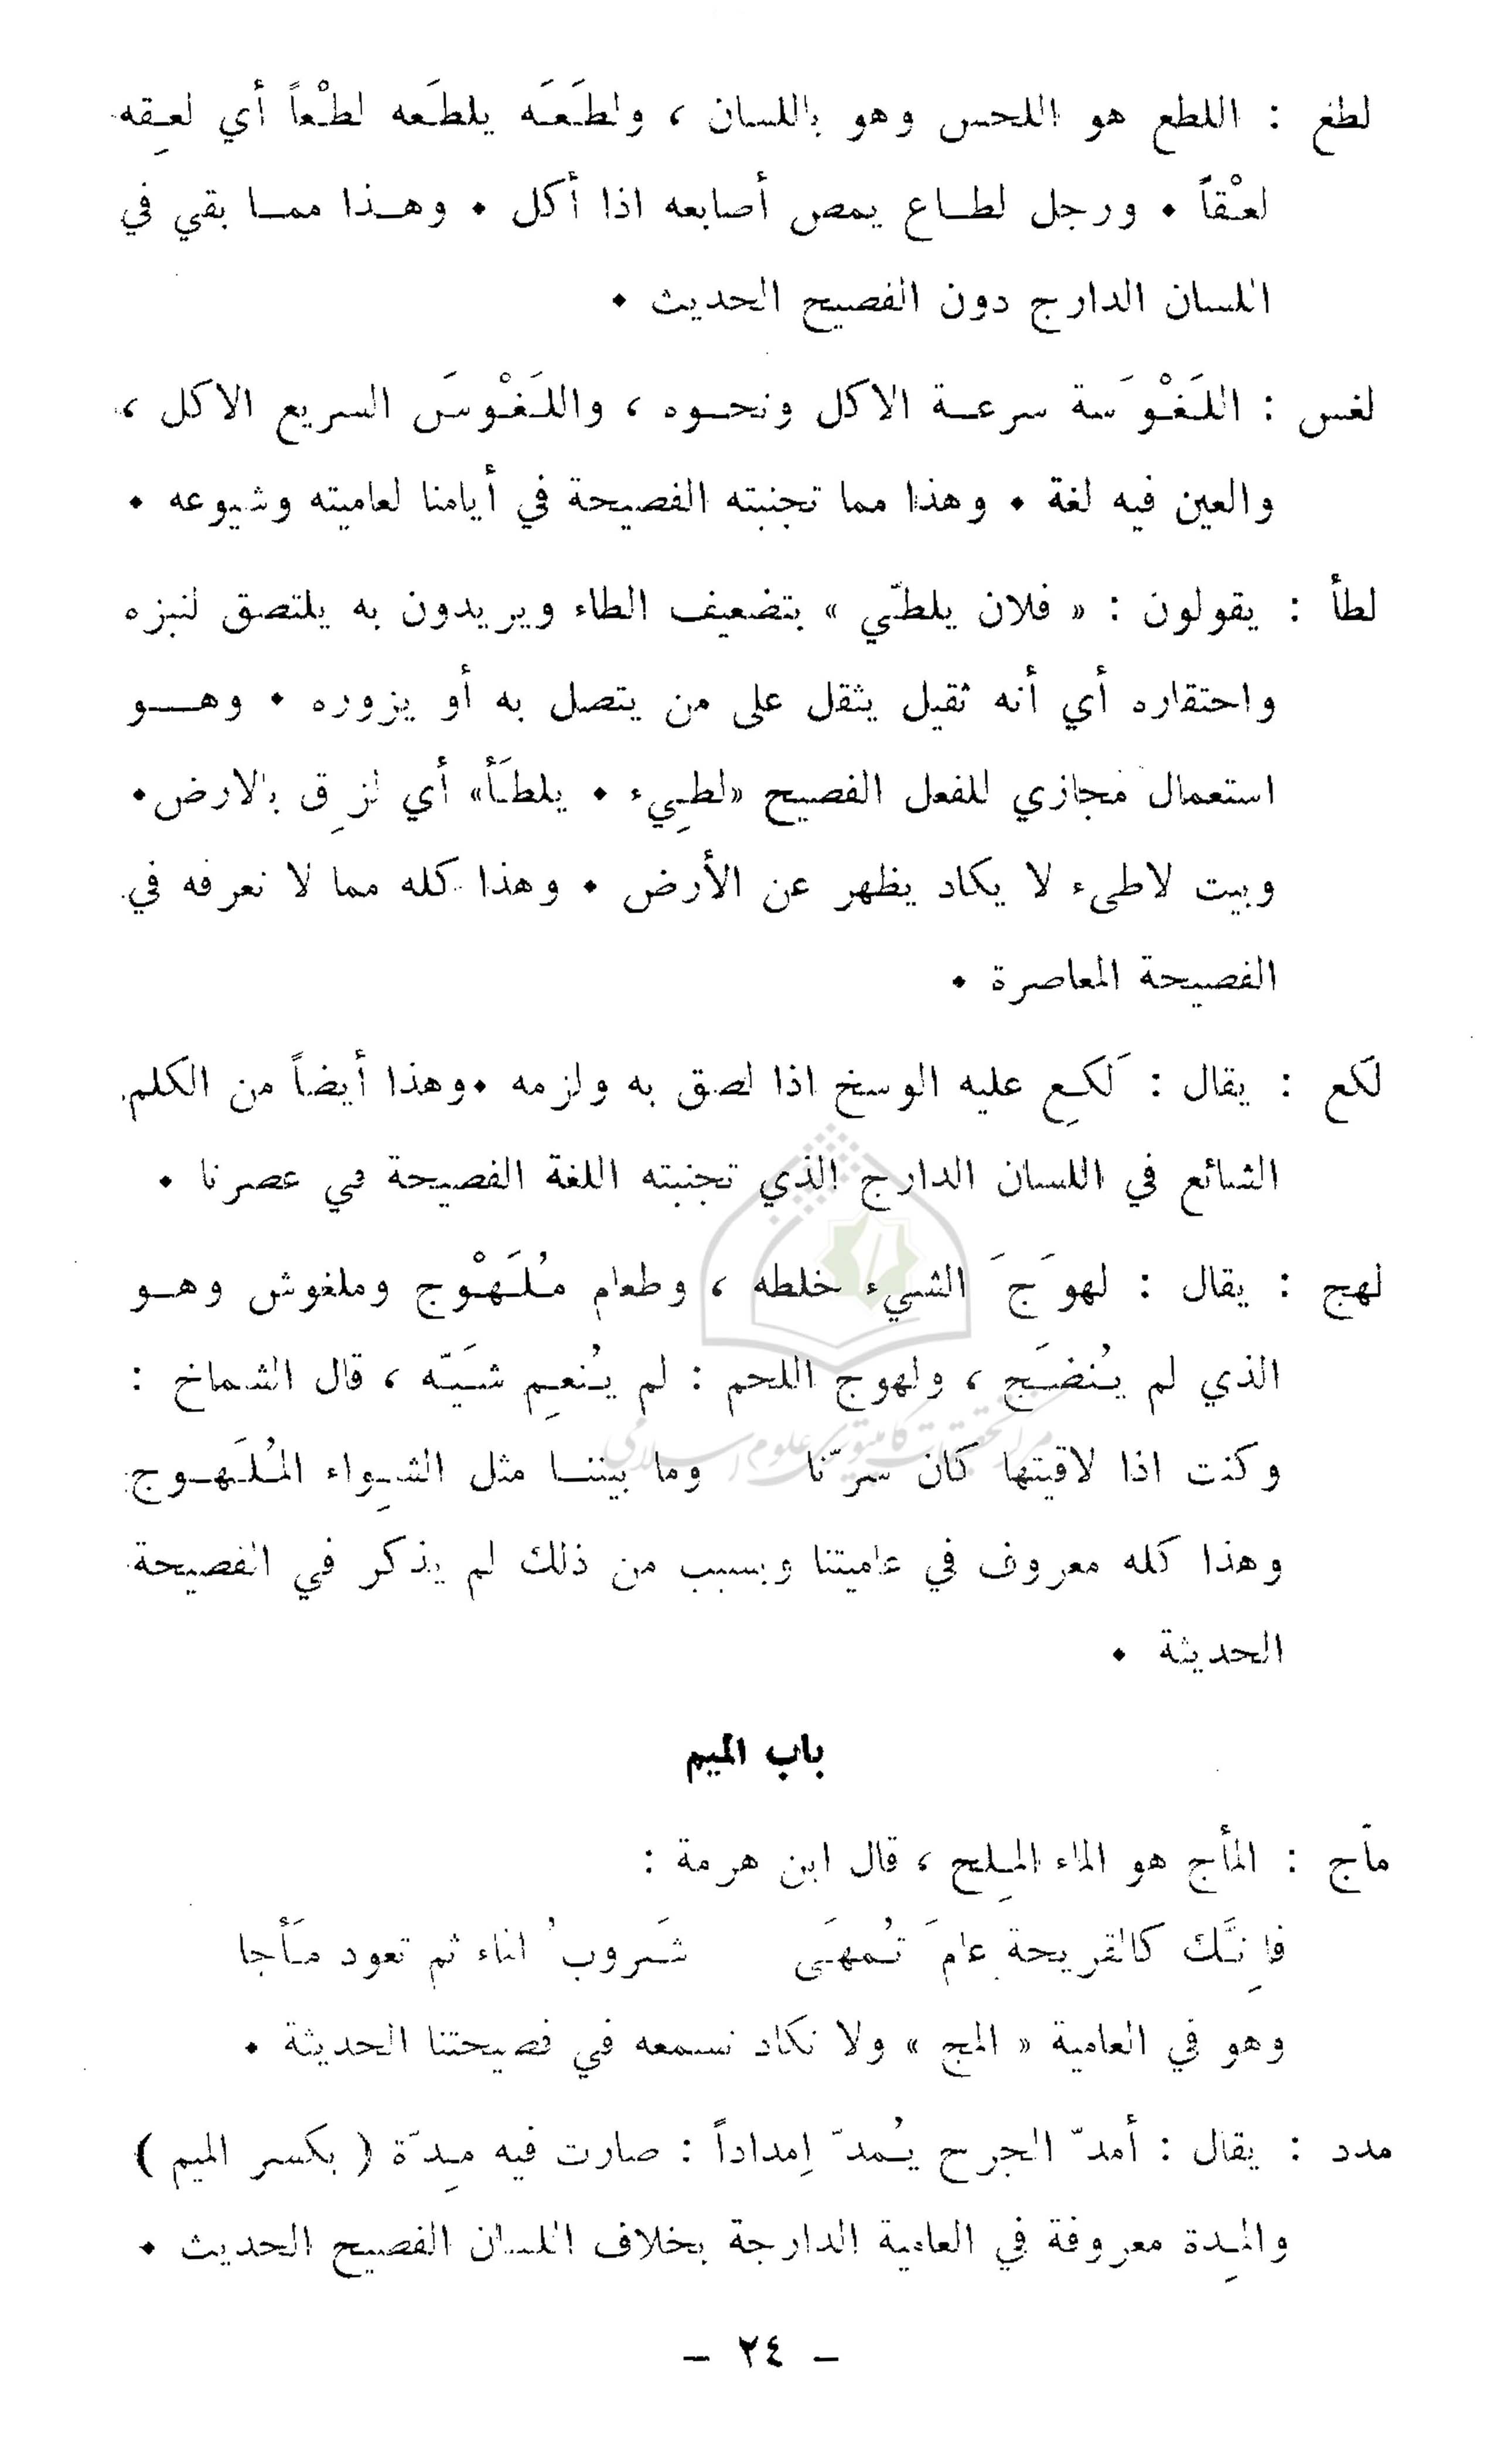 لطغ : اللطع هو اللحس وهو باللسان ، ولطَعَه يلطَعه لطْعاً أي لعِقه
لعْقاً . ورجل لطاع يمص أصابعه اذا أكل . وهذا مما بقي في
اللسان الدارج دون الفصيح الحديث .
لغس : اللَغْوَسة سرعة الاكل ونحوه ، واللَغْوسَ السريع الاكل ،
والعين فيه لغة . وهذا مما تجنبته الفصيحة في أيامنا لعاميته وشيوعه .
لطأ : يقولون : « فلان يلطّي » بتضعيف الطاء ويريدون به يلتصق لنبزه
واحتقاره أي أنه ثقيل يثقل على من يتصل به أو يزوره . وهو
استعمال مجازي للفعل الفصيح «لطِيء . يلطَأ» أي لزِق بالارض.
وبيت لاطىء لا يكاد يظهر عن الأرض . وهذا كله مما لا نعرفه في
الفصيحة المعاصرة .
لكع : يقال : لَكِع عليه الوسخ اذا لصق به ولزمه .وهذا أيضاً من الكلم
الشائع في اللسان الدارج الذي تجنبته اللغة الفصيحة في عصرنا .
لهج : يقال : لهوَجَ الشيء خلطه ، وطعام مُلَهْوج وملغوش وهو
الذي لم يُنضَج ، ولهوج اللحم : لم يُنعِم شَيّه ، قال الشماخ :
وكنت اذا لاقيتها كان سرّنا وما بيننا مثل الشِواء المُلَهوج
وهذا كله معروف في عاميتنا وبسبب من ذلك لم يذكر في الفصيحة
الحديثة .
باب الميم
مأج : المأج هو الماء المِلح ، قال ابن هرمة :
فاِنَّك كالقريحة عامَ تُمهَى شَروبُ اناء ثم تعود مَأجا
وهو في العامية « المج » ولا نكاد نسمعه في فصيحتنا الحديثة .
مدد : يقال : أمدّ الجرح يُمدّ اِمداداً : صارت فيه مِدّة ( بكسر الميم )
والمِدة معروفة في العامية الدارجة بخلاف اللسان الفصيح الحديث .
– ٢٤ –
مركز تحقيقات كامپيوتري علوم اسلامي